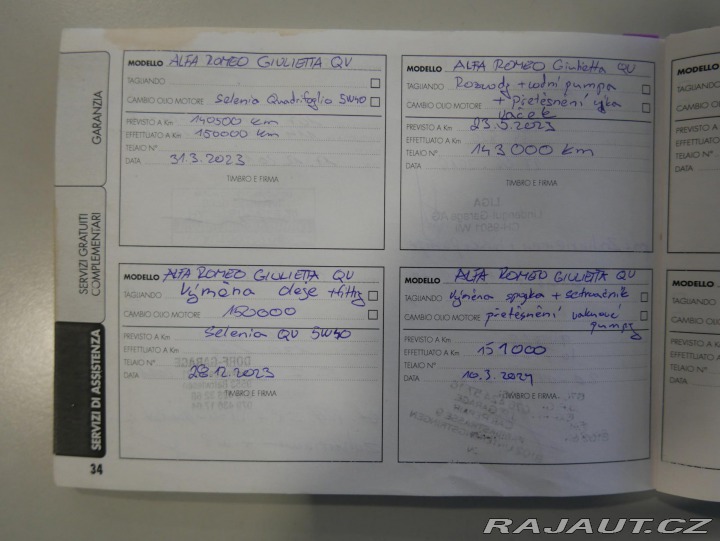 GARANZIA
SERVIZI GRATUITI
COMPLEMENTARI
SERVIZI DI ASSISTENZA
34
MODELLO ALFA ROMEO GIULIETTA QV
TAGLIANDO
CAMBIO OLIO MOTORE Selenia Quadrifoglio 5W40
PREVISTO A Km 140500 km
EFFETTUATO A Km 150000 km
TELAIO N°
DATA 31.3.2023
TIMBRO E FIRMA
MODELLO ALFA ROMEO Giulietta QV
TAGLIANDO Rozvody + vodní pumpa
CAMBIO OLIO MOTORE + přetěsnění víka
vaček
PREVISTO A Km 23.5.2023
EFFETTUATO A Km
TELAIO N° 143000 km
DATA
TIMBRO E FIRMA
MODELLO ALFA ROMEO GIULIETTA QV
TAGLIANDO Výměna oleje + filtry
CAMBIO OLIO MOTORE 150000
PREVISTO A Km Selenia QV 5W40
EFFETTUATO A Km
TELAIO N°
DATA 28.12.2023
TIMBRO E FIRMA
MODELLO ALFA ROMEO GIULIETTA QV
TAGLIANDO Výměna spojka + setrvačník
CAMBIO OLIO MOTORE přetěsnění vakuové
pumpy
PREVISTO A Km
EFFETTUATO A Km 151000
TELAIO N°
DATA 10.3.2024
TIMBRO E FIRMA
MODELLO
TAGLIANDO
CAMBIO OLIO
PREVISTO A Km
EFFETTUATO A
TELAIO N°
DATA
MODELLO
TAGLIANDO
CAMBIO OLIO
PREVISTO A
EFFETTUATO
TELAIO N°
DATA
RAJAUT.CZ